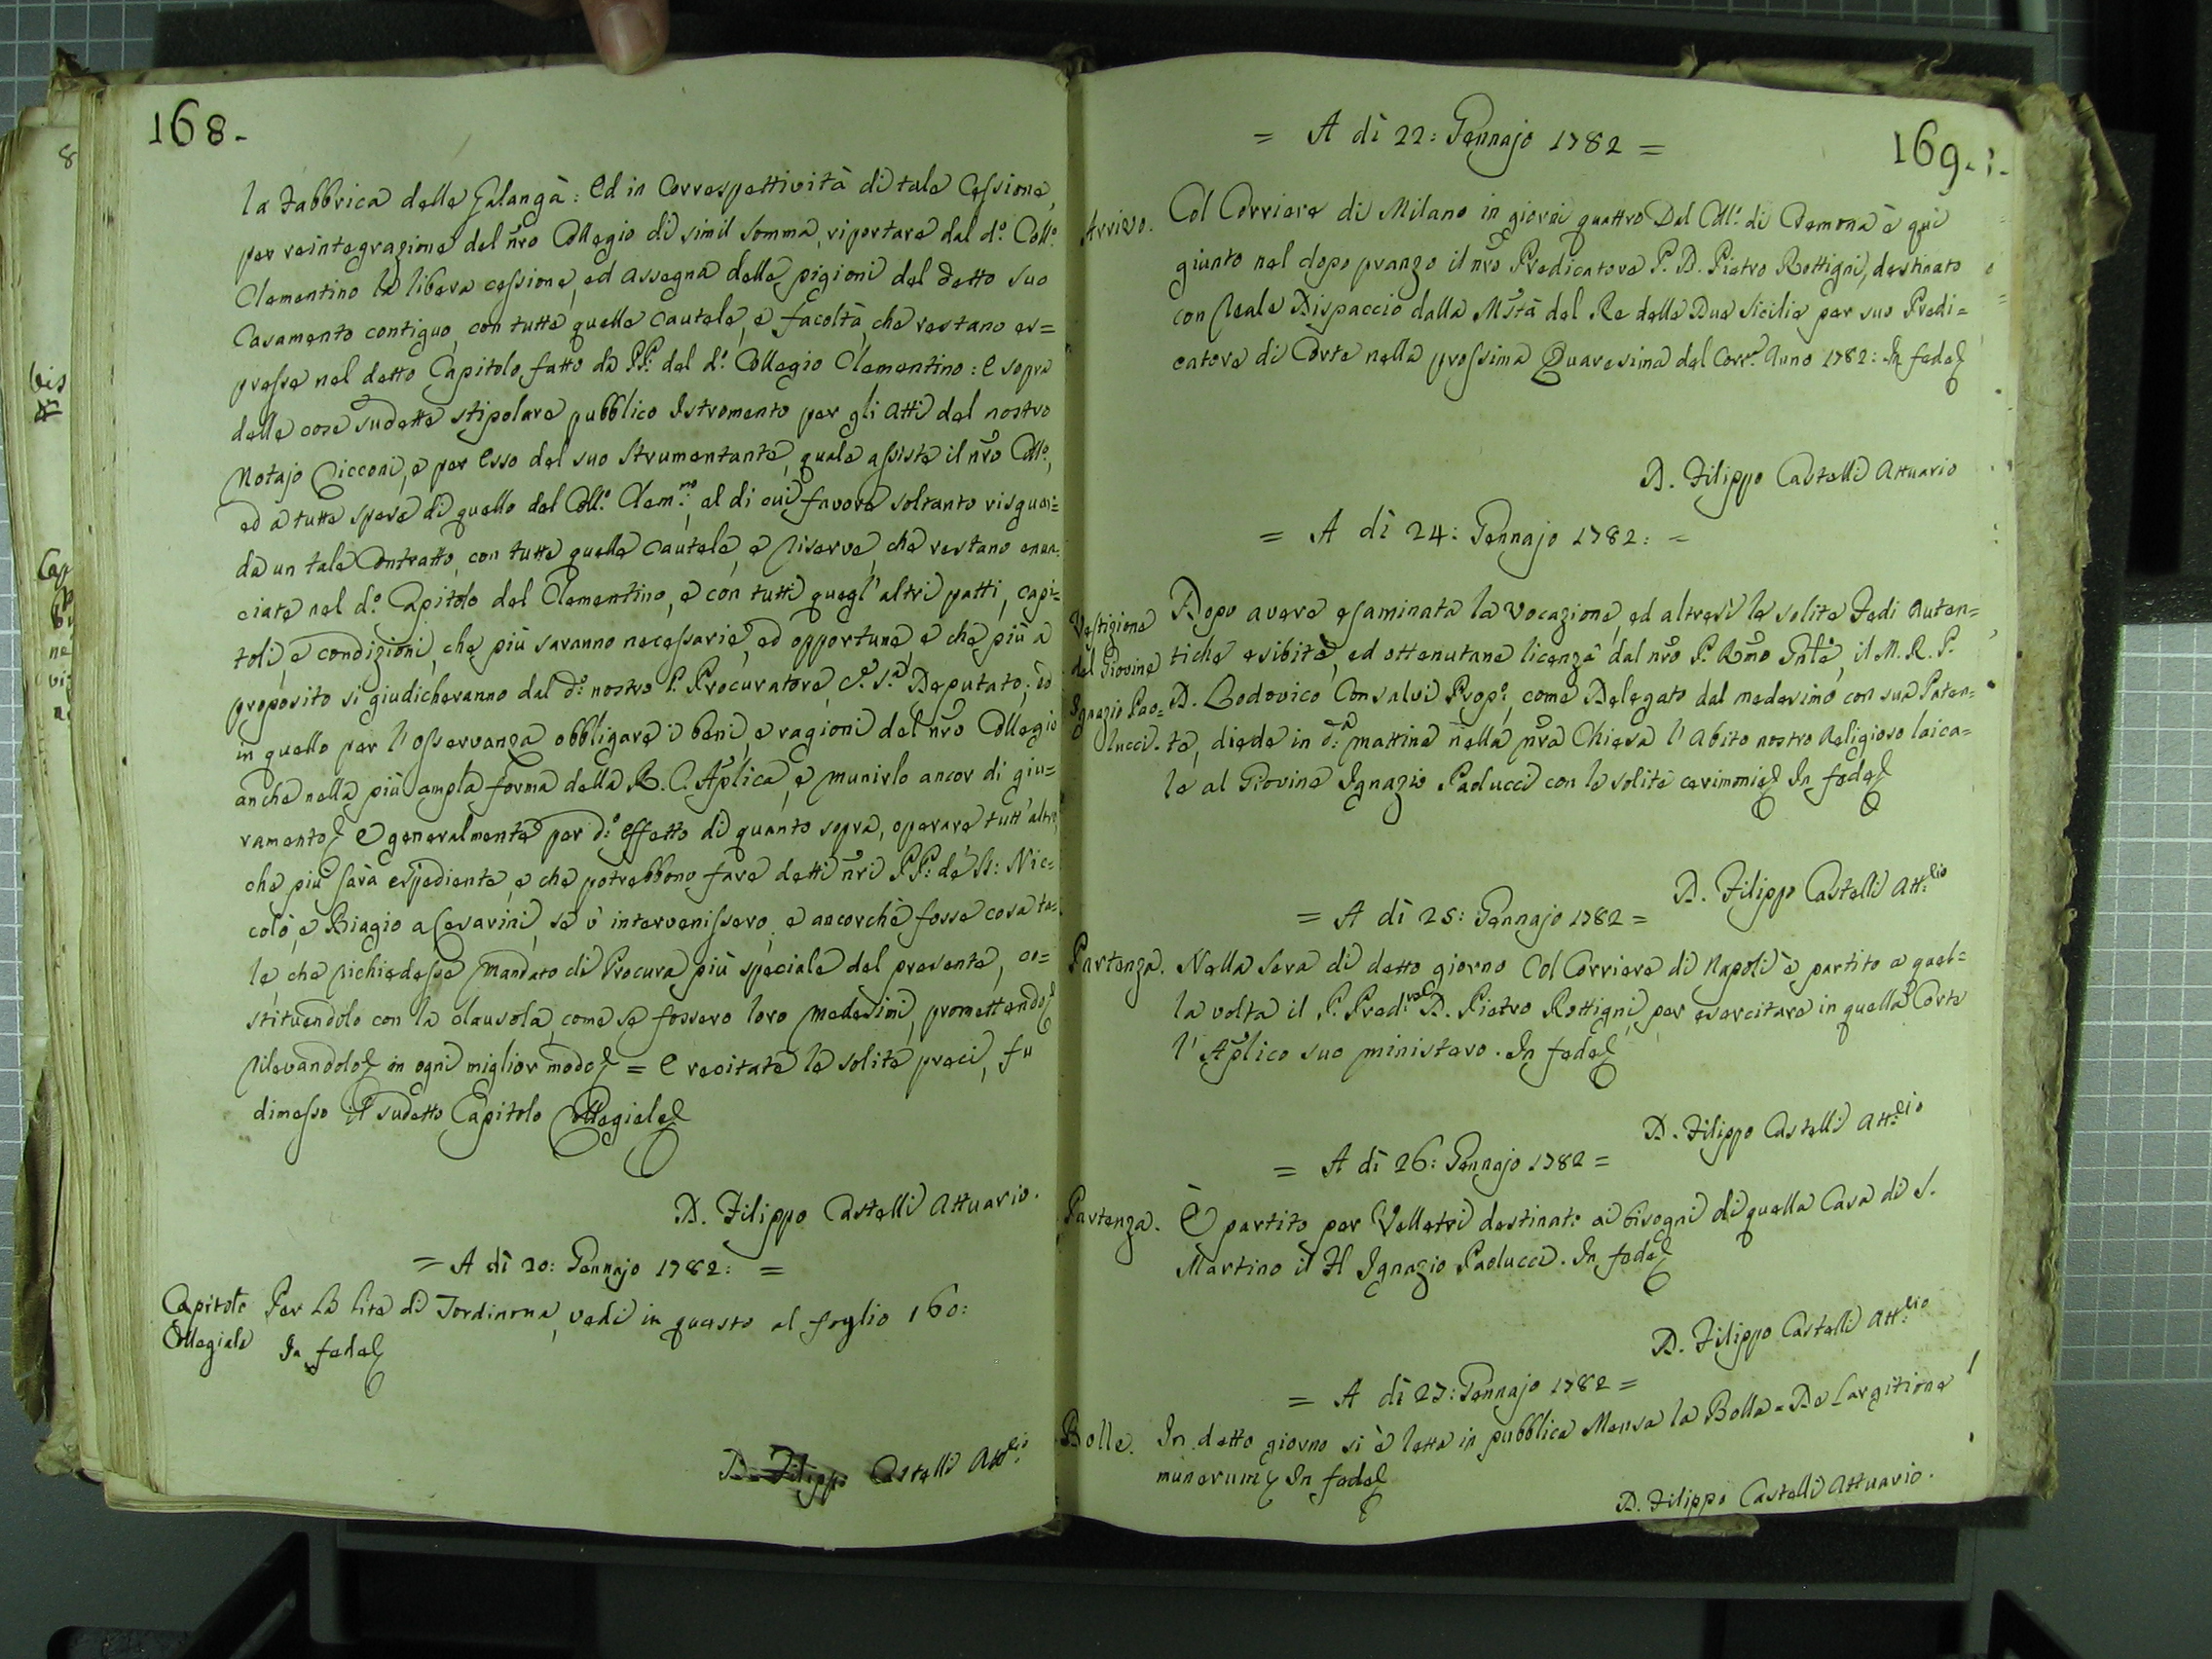 168.
la Fabbrica della Falangà: Ed in Correspettività di tale Cessione,
per reintegrazione del nro Collegio di simil somma, riportare dal d.º Coll.º
Clementino la libera cessione, ed assegna delle pigioni del detto suo
Casamento contiguo, con tutte quelle cautele, e facoltà, che restano es=
presse nel detto Capitolo fatto da PP: del d.º Collegio Clementino: e sopra
delle cose sudette stipolare pubblico Istromento per gli Atti del nostro
Notajo Cicconi, e per esso del suo Strumentante, quale assiste il nro Coll.º,
ed a tutte spese di quello del Coll.º Clem.no, al di cui favore soltanto risguar=
da un tale Contratto, con tutte quelle cautele, e riserve, che restano enun=
ciate nel d.º Capitolo del Clementino, e con tutti quegl'altri patti, capi=
toli, e condizioni, che più saranno necessarie, ed opportune, e che più a
proposito si giudicheranno dal d.º nostro P. Procuratore, C.e S.a Deputato; ed
in quello per l'osservanza obbligare i beni, e ragioni del nro Collegio
anche nella più ampla forma della R. C. Aplica, e munirlo ancor di giu=
ramento, e generalmente per d.º effetto di quanto sopra, operare tutt'altro,
che più sarà espediente, e che potrebbono fare detti nri PP: de SS: Nic=
colò, e Biagio a Cesarini, se v'intervenissero, e ancorchè fosse cosa ta=
le che richiedesse Mandato di Procura più speciale del presente, co=
stituendolo con la clausola, come se fossero loro medesimi, promettendo
rilevandolo in ogni miglior modo = E recitate le solite preci, fu
dimesso il sudetto Capitolo Collegiale
D. Filippo Castelli Attuario.
= A dì 20: Gennajo 1782: =
Capitolo Collegiale
Per la lite di Tordinona, vedi in questo al foglio 160:
In fede
D. Filippo Castelli Att.rio
169.
= A dì 22: Gennajo 1782 =
Arrivo.
Col Corriere di Milano in giorni quattro Dal Coll.º di Cremona è qui
giunto nel dopo pranzo il nro Predicatore P. D. Pietro Rottigni, destinato
con Reale Dispaccio dalla Mstà del Re delle Due Sicilie per suo Predi=
catore di Corte nella prossima Quaresima del Corr.e Anno 1782: In fede
D. Filippo Castelli Attuario
= A dì 24: Gennajo 1782: =
Vestizione
del Giovine
Ignazio Pao=
lucci.
Dopo avere esaminata la vocazione, ed altresì le solite Fedi auten=
tiche esibite, ed ottenutane licenza dal nro P. Rmo Gnle, il M. R. P.
D. Lodovico Consalvi Prop.º, come Delegato dal medesimo con sua Paten=
te, diede in d.a mattina nella nra Chiesa l'Abito nostro Religioso laica=
le al Giovine Ignazio Paolucci con le solite cerimonie In fede
D. Filippo Castelli Att.rio
= A dì 25: Gennajo 1782 =
Partenza.
Nella sera di detto giorno Col Corriere di Napoli è partito a quel=
la volta il P. Pred.re D. Pietro Rottigni, per esercitare in quella Corte
l'Aplico suo ministero. In fede
D. Filippo Castelli Att.rio
= A dì 26: Gennajo 1782 =
Partenza.
È partito per Velletri destinato ai bisogni di quella Casa di S.
Martino il Fl Ignazio Paolucci. In fede
D. Filippo Castelli Att.rio
= A dì 27: Gennajo 1782 =
Bolle.
In detto giorno si è letta in pubblica Mensa la Bolla = De Largitione
munerum, In fede
D. Filippo Castelli Attuario.